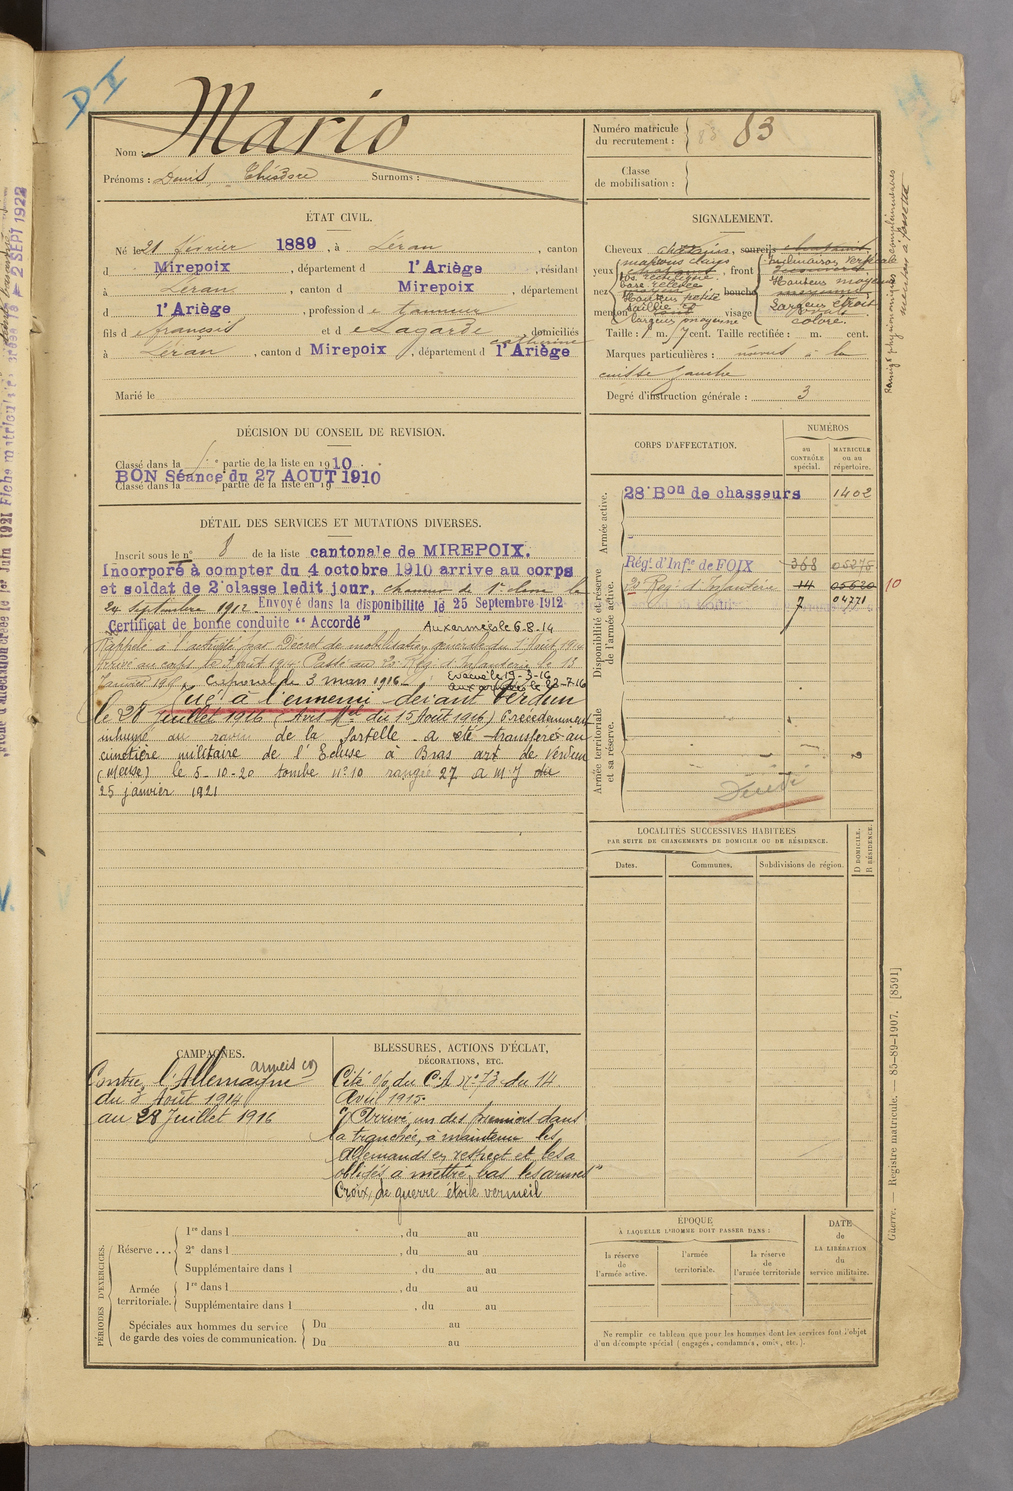 DI
Mario
Nom :
Prénoms : Denis, Théodore Surnoms :
Numéro matricule
du recrutement : 83
Classe
de mobilisation :
ÉTAT CIVIL.
Né le 21 février 1889, à Léran, canton
d Mirepoix, département d l'Ariège, résidant
à Léran, canton d Mirepoix, département
d l'Ariège, profession de tanneur
fils de françois et de Lagarde catherine domiciliés
à Léran, canton d Mirepoix, département d l'Ariège
Marié le
SIGNALEMENT.
Cheveux châtains, sourcils
yeux marrons clairs, front inclinaison verticale
Hauteur moyenne
nez rectiligne
base relevée
Hauteur petite
saillie
largeur moyenne
bouche
Largeur étroit
menton visage ovale
coloré.
Taille : 1 m. cent. Taille rectifiée : m. cent.
Marques particulières : nævus à la
cuisse gauche
Degré d'instruction générale : 3
DÉCISION DU CONSEIL DE REVISION.
Classé dans la partie de la liste en 1910
BON Séance du 27 AOUT 1910
Classé dans la partie de la liste en 19
DÉTAIL DES SERVICES ET MUTATIONS DIVERSES.
Inscrit sous le n° 8 de la liste cantonale de MIREPOIX.
Incorporé à compter du 4 octobre 1910 arrive au corps
et soldat de 2e classe ledit jour, chasseur de 1re classe le
24 septembre 1912. Envoyé dans la disponibilité le 25 Septembre 1912
Certificat de bonne conduite "Accordé" Aux armées le 6-8-14
Rappelé à l'activité par Décret de mobilisation générale du 1er Août 1914
Arrivé au corps le 3 août 1914. Passé au 2e Rég. d'Infanterie le 13
Janvier 1916. Caporal le 3 mars 1916 - Evacué le 19-3-16
aux armées le 23-7-16
Tué à l'ennemi devant Verdun
le 28 Juillet 1916 (Avis Mel du 15 Août 1916) Précédemment
inhumé au ravin de la a été transféré au
cimetière militaire de l'Ecluse à Bras art de Verdun
(Meuse) le 5-10-20 tombe n° 10 rangée 27 A.M.J du
25 janvier 1921
CORPS D'AFFECTATION.
NUMÉROS
au
CONTRÔLE
spécial.
MATRICULE
ou au
répertoire.
Armée active.
28e Bon de chasseurs 1402
Disponibilité et réserve
de l'armée active.
Régt d'Infie de FOIX 368
2e Rég. d'Infanterie 14 05620 10
7 04771
Armée territoriale
et sa réserve.
Décédé
LOCALITÉS SUCCESSIVES HABITÉES
PAR SUITE DE CHANGEMENTS DE DOMICILE OU DE RÉSIDENCE.
Dates.
Communes.
Subdivisions de région.
D DOMICILE.
R RÉSIDENCE.
CAMPAGNES.
armées
Contre l'Allemagne
du 3 Août 1914
au 28 Juillet 1916
BLESSURES, ACTIONS D'ÉCLAT,
DÉCORATIONS, ETC.
Cité o/o du C.A n° 73 du 14
Avril 1915.
"Arrivé un des premiers dans
la tranchée, a maintenu les
Allemands en respect et les a
obligés à mettre bas les armes"
Croix de guerre étoile vermeil
PÉRIODES D'EXERCICES.
Réserve ...
1re dans l , du au
2e dans l , du au
Supplémentaire dans l , du au
Armée
territoriale.
1re dans l , du au
Supplémentaire dans l , du au
Spéciales aux hommes du service
de garde des voies de communication.
Du au
Du au
ÉPOQUE
À LAQUELLE L'HOMME DOIT PASSER DANS :
la réserve
de
l'armée active.
l'armée
territoriale.
la réserve
de
l'armée territoriale
DATE
de
LA LIBÉRATION
du
service militaire.
Ne remplir ce tableau que pour les hommes dont les services font l'objet
d'un décompte spécial (engagés, condamnés, omis, etc.).
Guerre. — Registre matricule. — 85-89-1907. [8591]
Renseigts physionomiques complémentaires
menton à fossette